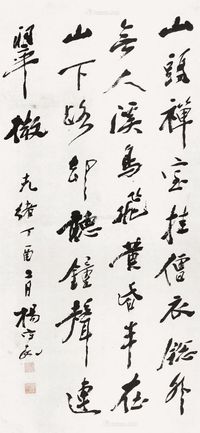 山頭禪室挂僧衣窗外
無人溪鳥飛黃昏半在
山下路却聽鐘聲連
翠微
光緒丁酉二月楊守敬